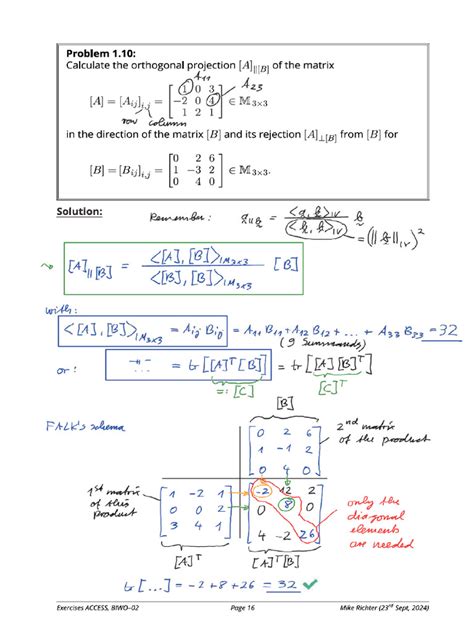 Problem 1.10:
Calculate the orthogonal projection [A]∥[B] of the matrix
A₁₁ A₂₃
[A] = [Aij]i,j = [ 1 0 3
−2 0 4
1 2 1 ] ∈ M3×3
row column
in the direction of the matrix [B] and its rejection [A]⊥[B] from [B] for
[B] = [Bij]i,j = [ 0 2 6
1 −3 2
0 4 0 ] ∈ M3×3.
Solution:
Remember: a∥b = <a, b>IV / <b, b>IV b
= (||b||IV)²
[A]∥[B] = <[A], [B]>IM3×3 / <[B], [B]>IM3×3 [B]
with:
<[A], [B]>IM3×3 = Aij Bij = A11 B11 + A12 B12 + ... + A33 B33 = 32
(9 Summands)
or: —"— = tr[[A]ᵀ[B]] = tr[[A][B]ᵀ]
=: [C] [C]ᵀ
[B]
FALK's schema
[ 0 2 6
1 −1 2
0 4 0 ]
2nd matrix
of the product
1st matrix
of this
product
[ 1 −2 1
0 0 2
3 4 1 ]
[ −2 12 2
0 8 0
4 −2 26 ]
only the
diagonal
elements
are needed
[A]ᵀ [A]ᵀ[B]
tr[...] = −2 + 8 + 26 = 32 ✓
Exercises ACCESS, BIWO–02 Page 16 Mike Richter (23rd Sept, 2024)